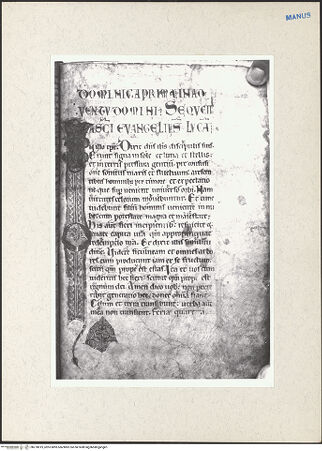 MANUS
DOMINICA PRIMA IN AD
VENTU DOMINI SEQVEN
SCI EVANGELII S LVCA
Dixit dns ihs discipulis suis
Erunt signa in sole et luna et stellis
et in terris pressura gentium
sonitus maris et fluctuum
hominibus timore et expectatio
que super venient universo orbi Nam
virtutes celorum movebuntur Et tunc
videbunt filium hominis venientem in nu
be cum potestate magna et maiestate
His autem fieri incipientibus respicite et
levate capita vestra qm appropinquat
redemptio vra Et dixit illis similitu
dinem Videte ficulneam et omnes arbo
res cum producunt iam ex se fructum
scitis qm prope est estas Ita et vos cum
videritis hec fieri scitote qm prope est
regnum dei Amen dico vobis non prete
ribit generatio hec donec omnia fiant
Celum et terra transibunt verba aut
mea non transibunt feria quarta